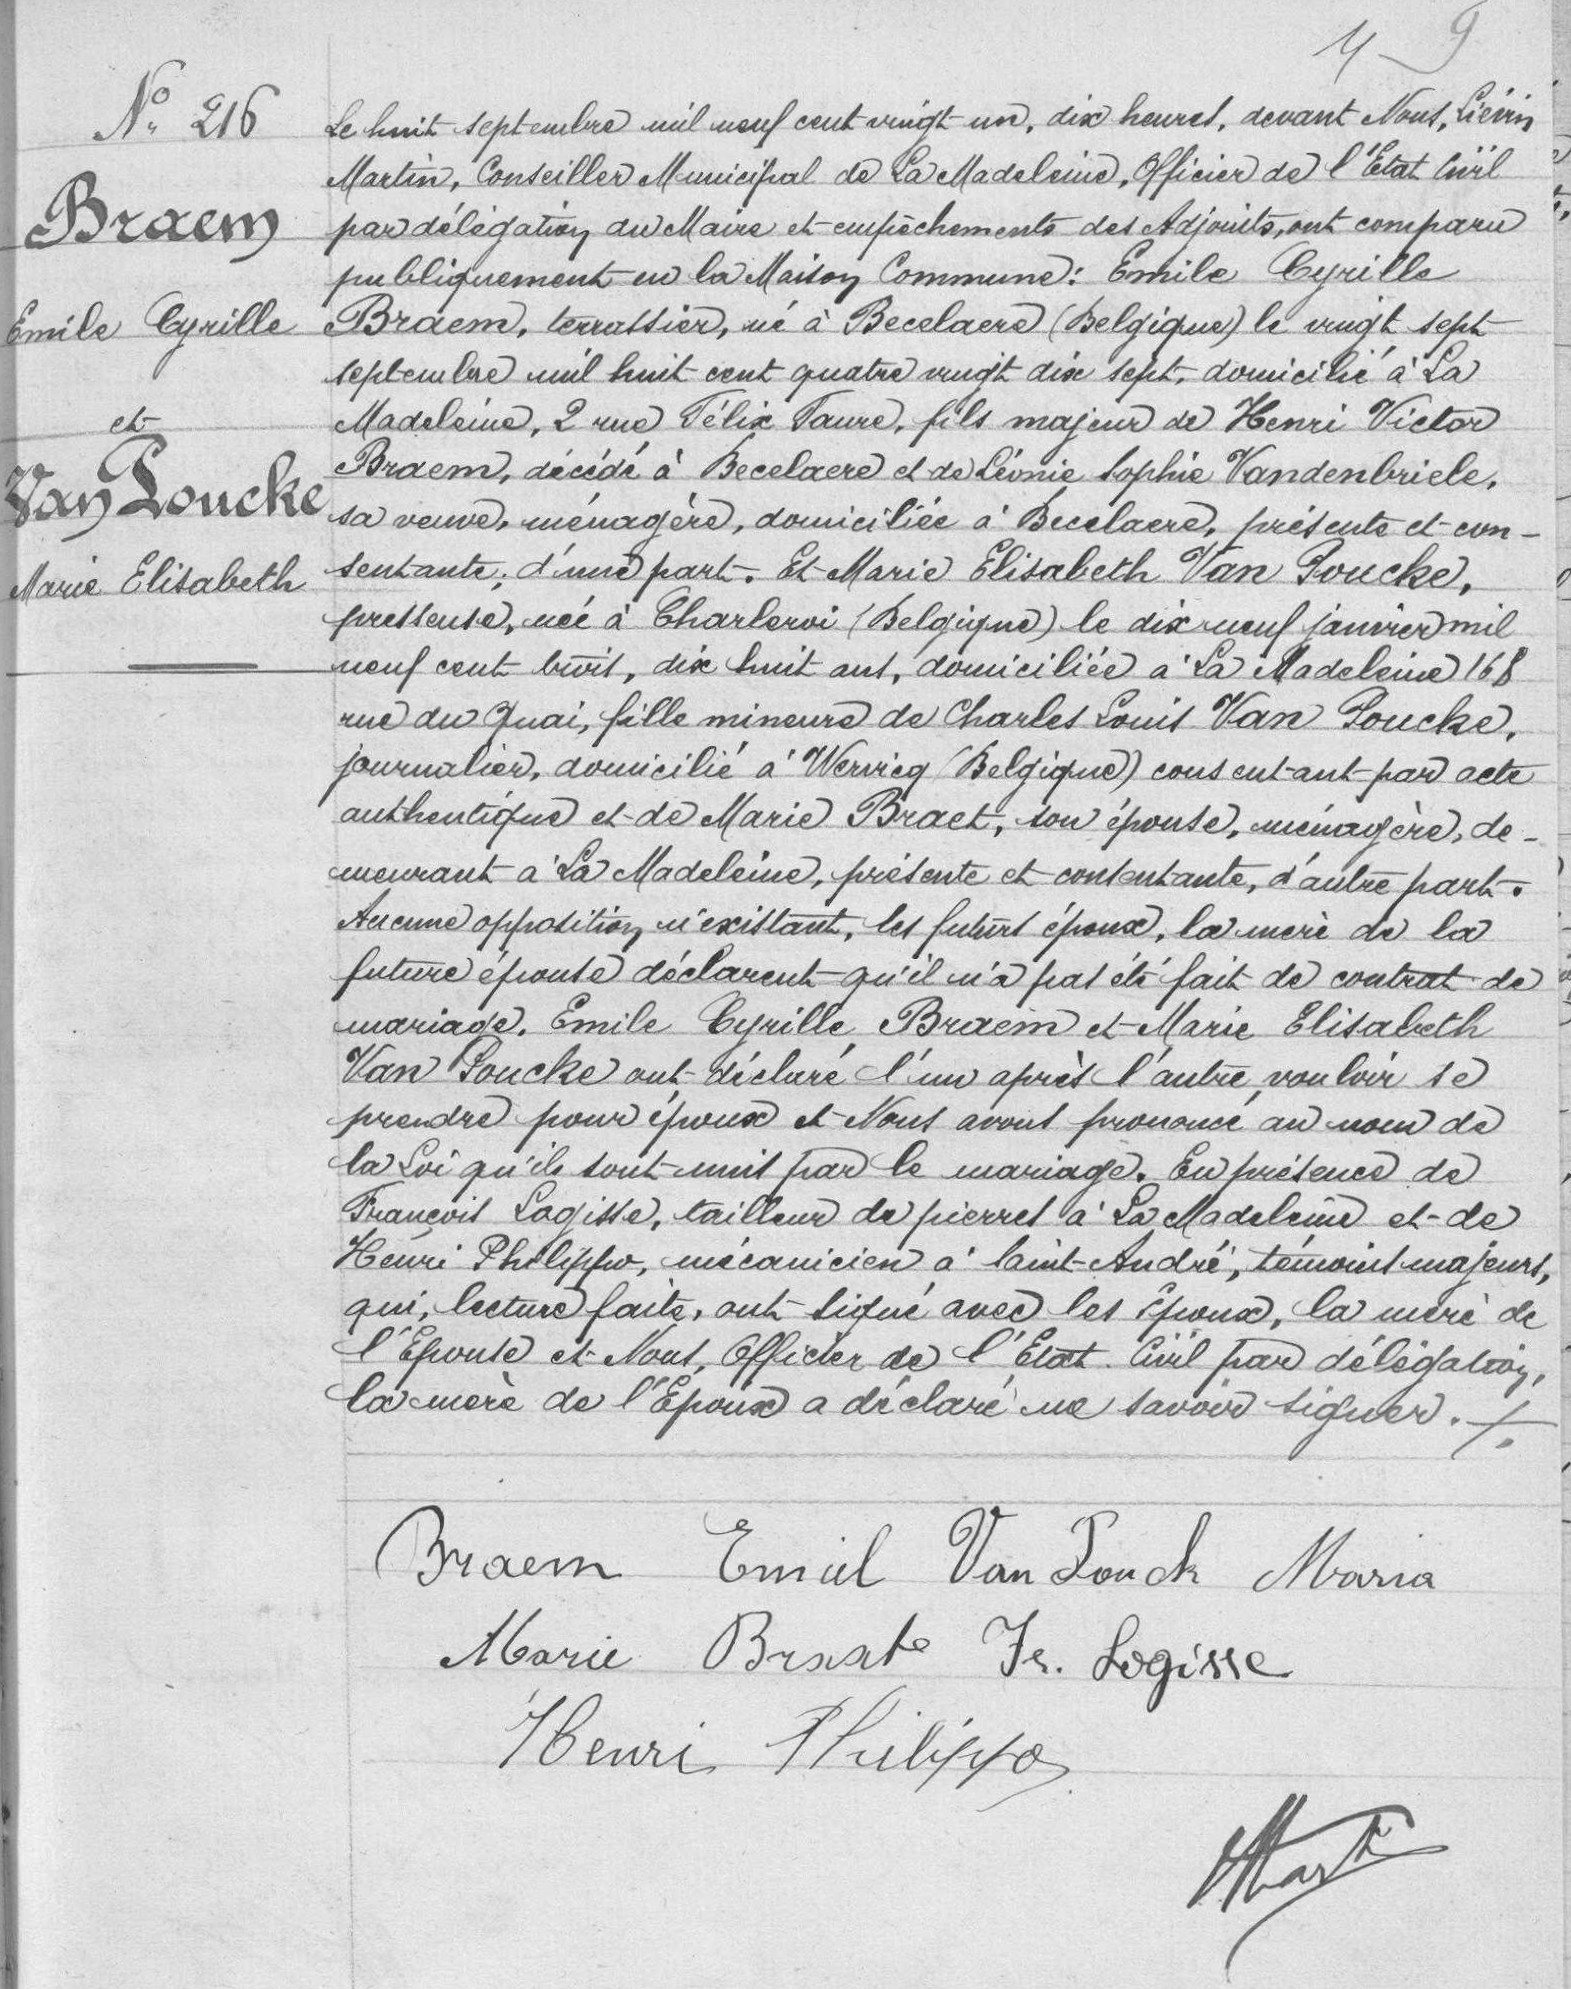 N° 216
Braem
Emile Cyrille
et
Van Poucke
Marie Elisabeth
Le huit septembre mil neuf cent vingt un, dix heures, devant Nous, Liévin
Martin, Conseiller Municipal de La Madeleine, Officier de l'Etat Civil
par délégation du Maire et empêchements des Adjoints, ont comparu
publiquement en la Maison Commune: Emile Cyrille
Braem, terrassier, né à Becelaere (Belgique) le vingt sept
septembre mil huit cent quatre vingt dix sept, domicilié à La
Madeleine, 2 rue Félix Faure, fils majeur de Henri Victor
Braem, décédé à Becelaere et de Léonie Sophie Vandenbriele,
sa veuve, ménagère, domiciliée à Becelaere, présente et con-
sentante; d'une part. Et Marie Elisabeth Van Poucke,
presseuse, née à Charleroi (Belgique) le dix neuf janvier mil
neuf cent trois, dix huit ans, domiciliée à La Madeleine 168
rue du Quai, fille mineure de Charles Louis Van Poucke,
journalier, domicilié à Wervicq (Belgique) consentant par acte
authentique et de Marie Braet, son épouse, ménagère, de-
meurant à La Madeleine, présente et consentante, d'autre part.
Aucune opposition n'existant, les futurs époux, la mère de la
future épouse déclarent qu'il n'a pas été fait de contrat de
mariage. Emile Cyrille Braem et Marie Elisabeth
Van Poucke ont déclaré l'un après l'autre vouloir se
prendre pour époux et Nous avons prononcé au nom de
la Loi qu'ils sont unis par le mariage. En présence de
François Logisse, tailleur de pierres à La Madeleine et de
Henri Philippo, mécanicien à Saint-André, témoins majeurs,
qui, lecture faite, ont signé avec les Epoux, la mère de
l'Epouse et Nous, Officier de l'Etat Civil par délégation,
la mère de l'Epoux a déclaré ne savoir signer.
Braem Emiel Van Pouck Maria
Marie Braate Fr. Logisse
Henri Philippo